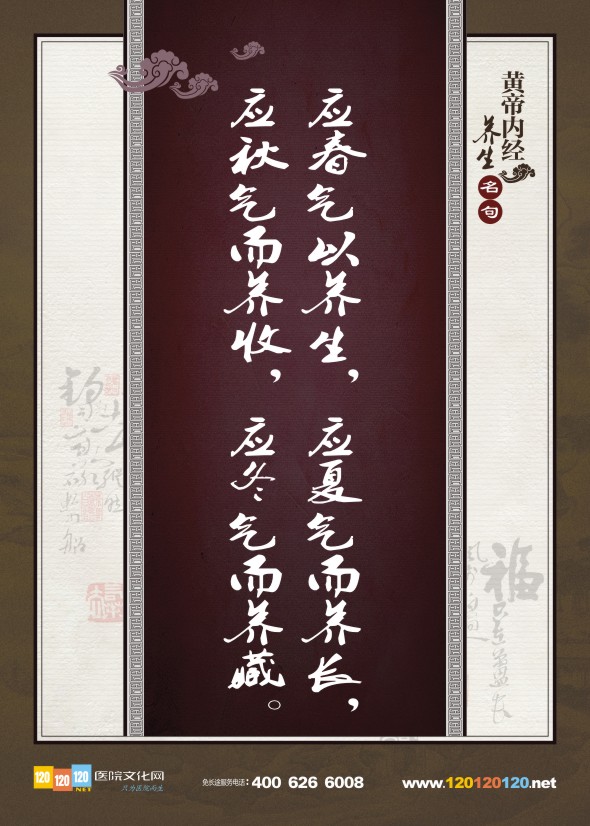 黄帝内经
养生
名句
应春气以养生，应夏气而养长，
应秋气而养收，应冬气而养藏。
120 120 120
NET
医院文化网
只为医院而生
免长途服务电话：400 626 6008
www.120120120.net